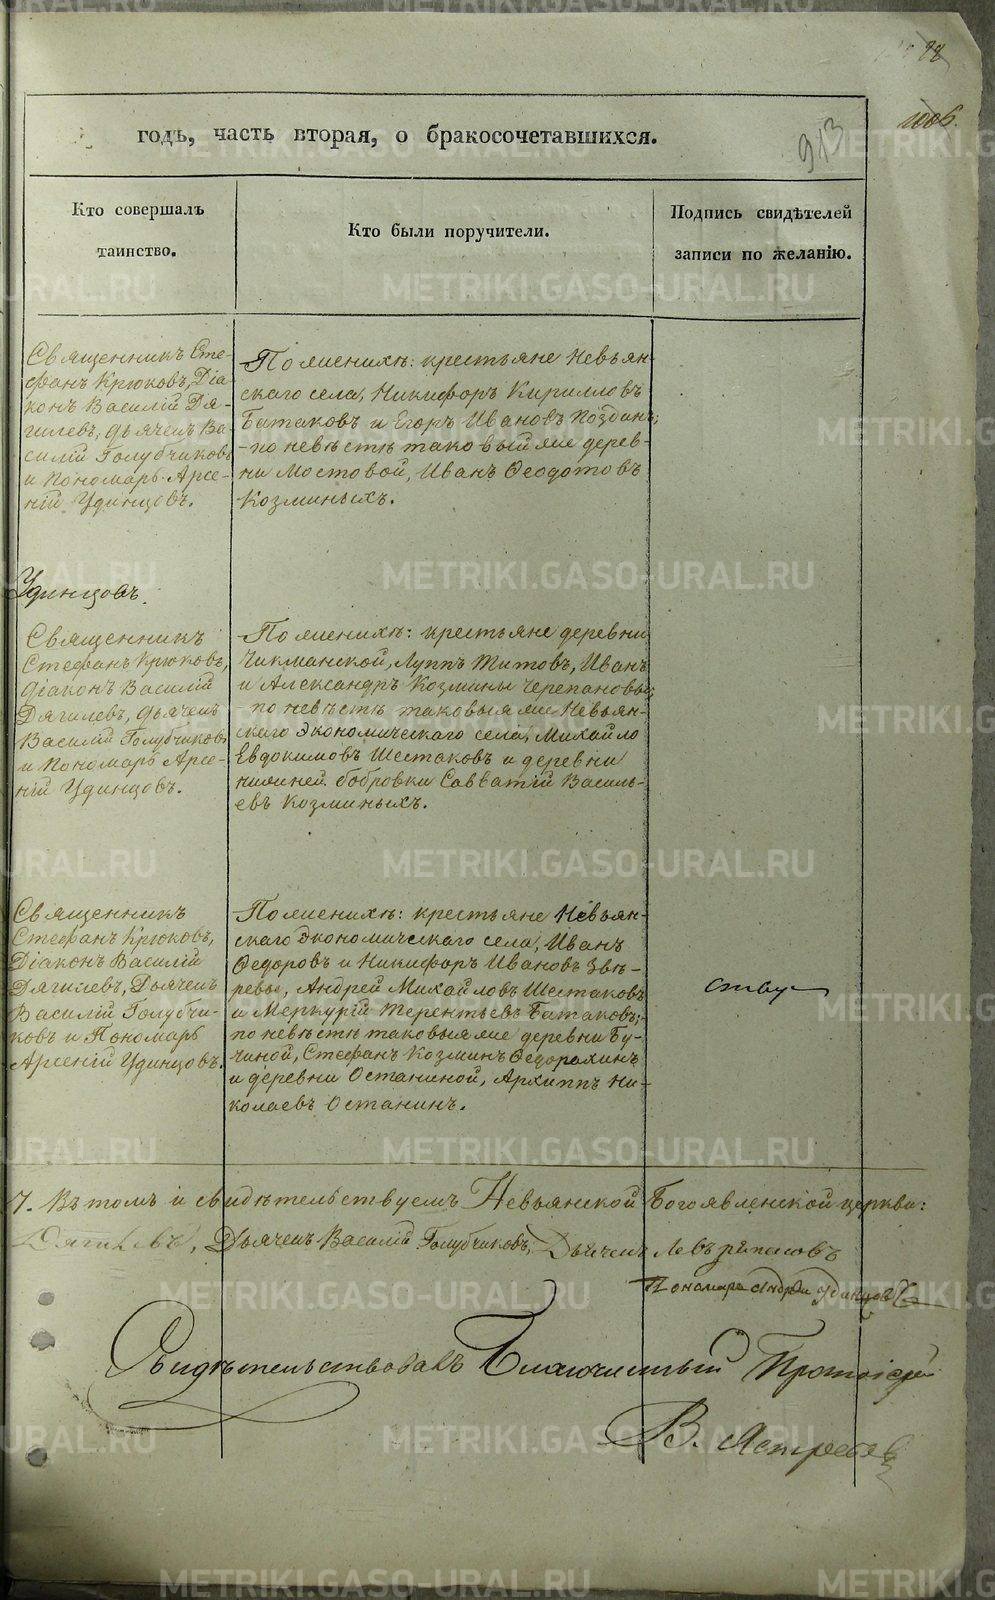 88
1006.
913
годъ, часть вторая, о бракосочетавшихся.
Кто совершалъ
таинство.
Кто были поручители.
Подпись свидѣтелей
записи по желанію.
Священникъ Сте-
фанъ Крюковъ, Діа-
конъ Василій Дя-
гилевъ, дьячекъ Ва-
силій Голубчиковъ
и Пономарь Арсе-
ній Удинцовъ.
По женихѣ: крестьяне Невьян-
скаго села, Никифоръ Кирилловъ
Батаковъ и Егоръ Ивановъ
-по невѣстѣ таковый же дерев-
ни Мостовой, Иванъ Ѳеодотовъ
Козминыхъ.
Удинцовъ.
Священникъ
Стефанъ Крюковъ,
Діаконъ Василій
Дягилевъ, Дьячекъ
Василій Голубчиковъ
и Пономарь Арсе-
ній Удинцовъ.
По женихѣ: крестьяне деревни
Чикманской, Луппъ Титовъ, Иванъ
и Александръ Козмины Черепановы;
-по невѣстѣ таковыя же Невьян-
скаго экономическаго села, Михайло
Евдокимовъ Шестаковъ и деревни
нижней бобровки Савватій Василь-
евъ Козминыхъ.
Священникъ
Стефанъ Крюковъ,
Діаконъ Василій
Дягилевъ, Дьячекъ
Василій Голубчи-
ковъ и Пономарь
Арсеній Удинцовъ.
По женихѣ: крестьяне Невьян-
скаго экономическаго села, Иванъ
Ѳедоровъ и Никифоръ Ивановъ Звѣ-
ревы, Андрей Михайловъ Шестаковъ
и Меркурій Терентьевъ Батаковъ;
по невѣстѣ таковыя же деревни Бу-
чиной, Стефанъ Козминъ Ѳедорахинъ
и деревни Останиной, Архиппъ Ни-
колаевъ Останинъ.
ству
7. Въ томъ и свидѣтельствуемъ Невьянской Богоявленской церкви:
Дягилевъ, Дьячекъ Василій Голубчиковъ, Дьячекъ Левъ
Пономарь Андрей Удинцовъ
Свидѣтельствовалъ Благочинный Протоіерей
В. Ястребовъ
METRIKI.GASO-URAL.RU